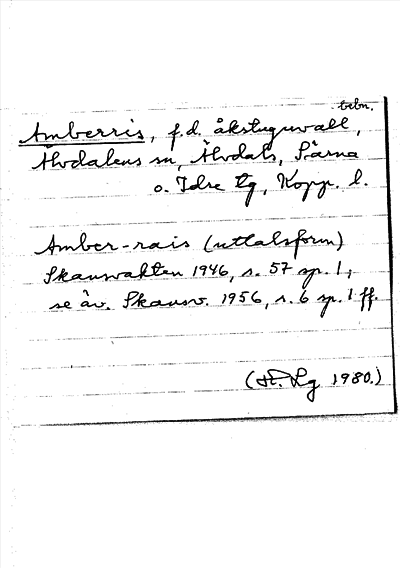 bebn.
Amberris, f.d. åkstuguvall,
Älvdalens sn, Älvdals, Särna
o. Idre tg, Kopp. l.
Amber-rais (uttalsform)
Skansvakten 1946, s. 57 sp. 1,
se äv. Skansv. 1956, s. 6 sp. 1 ff.
(H. Lg 1980.)